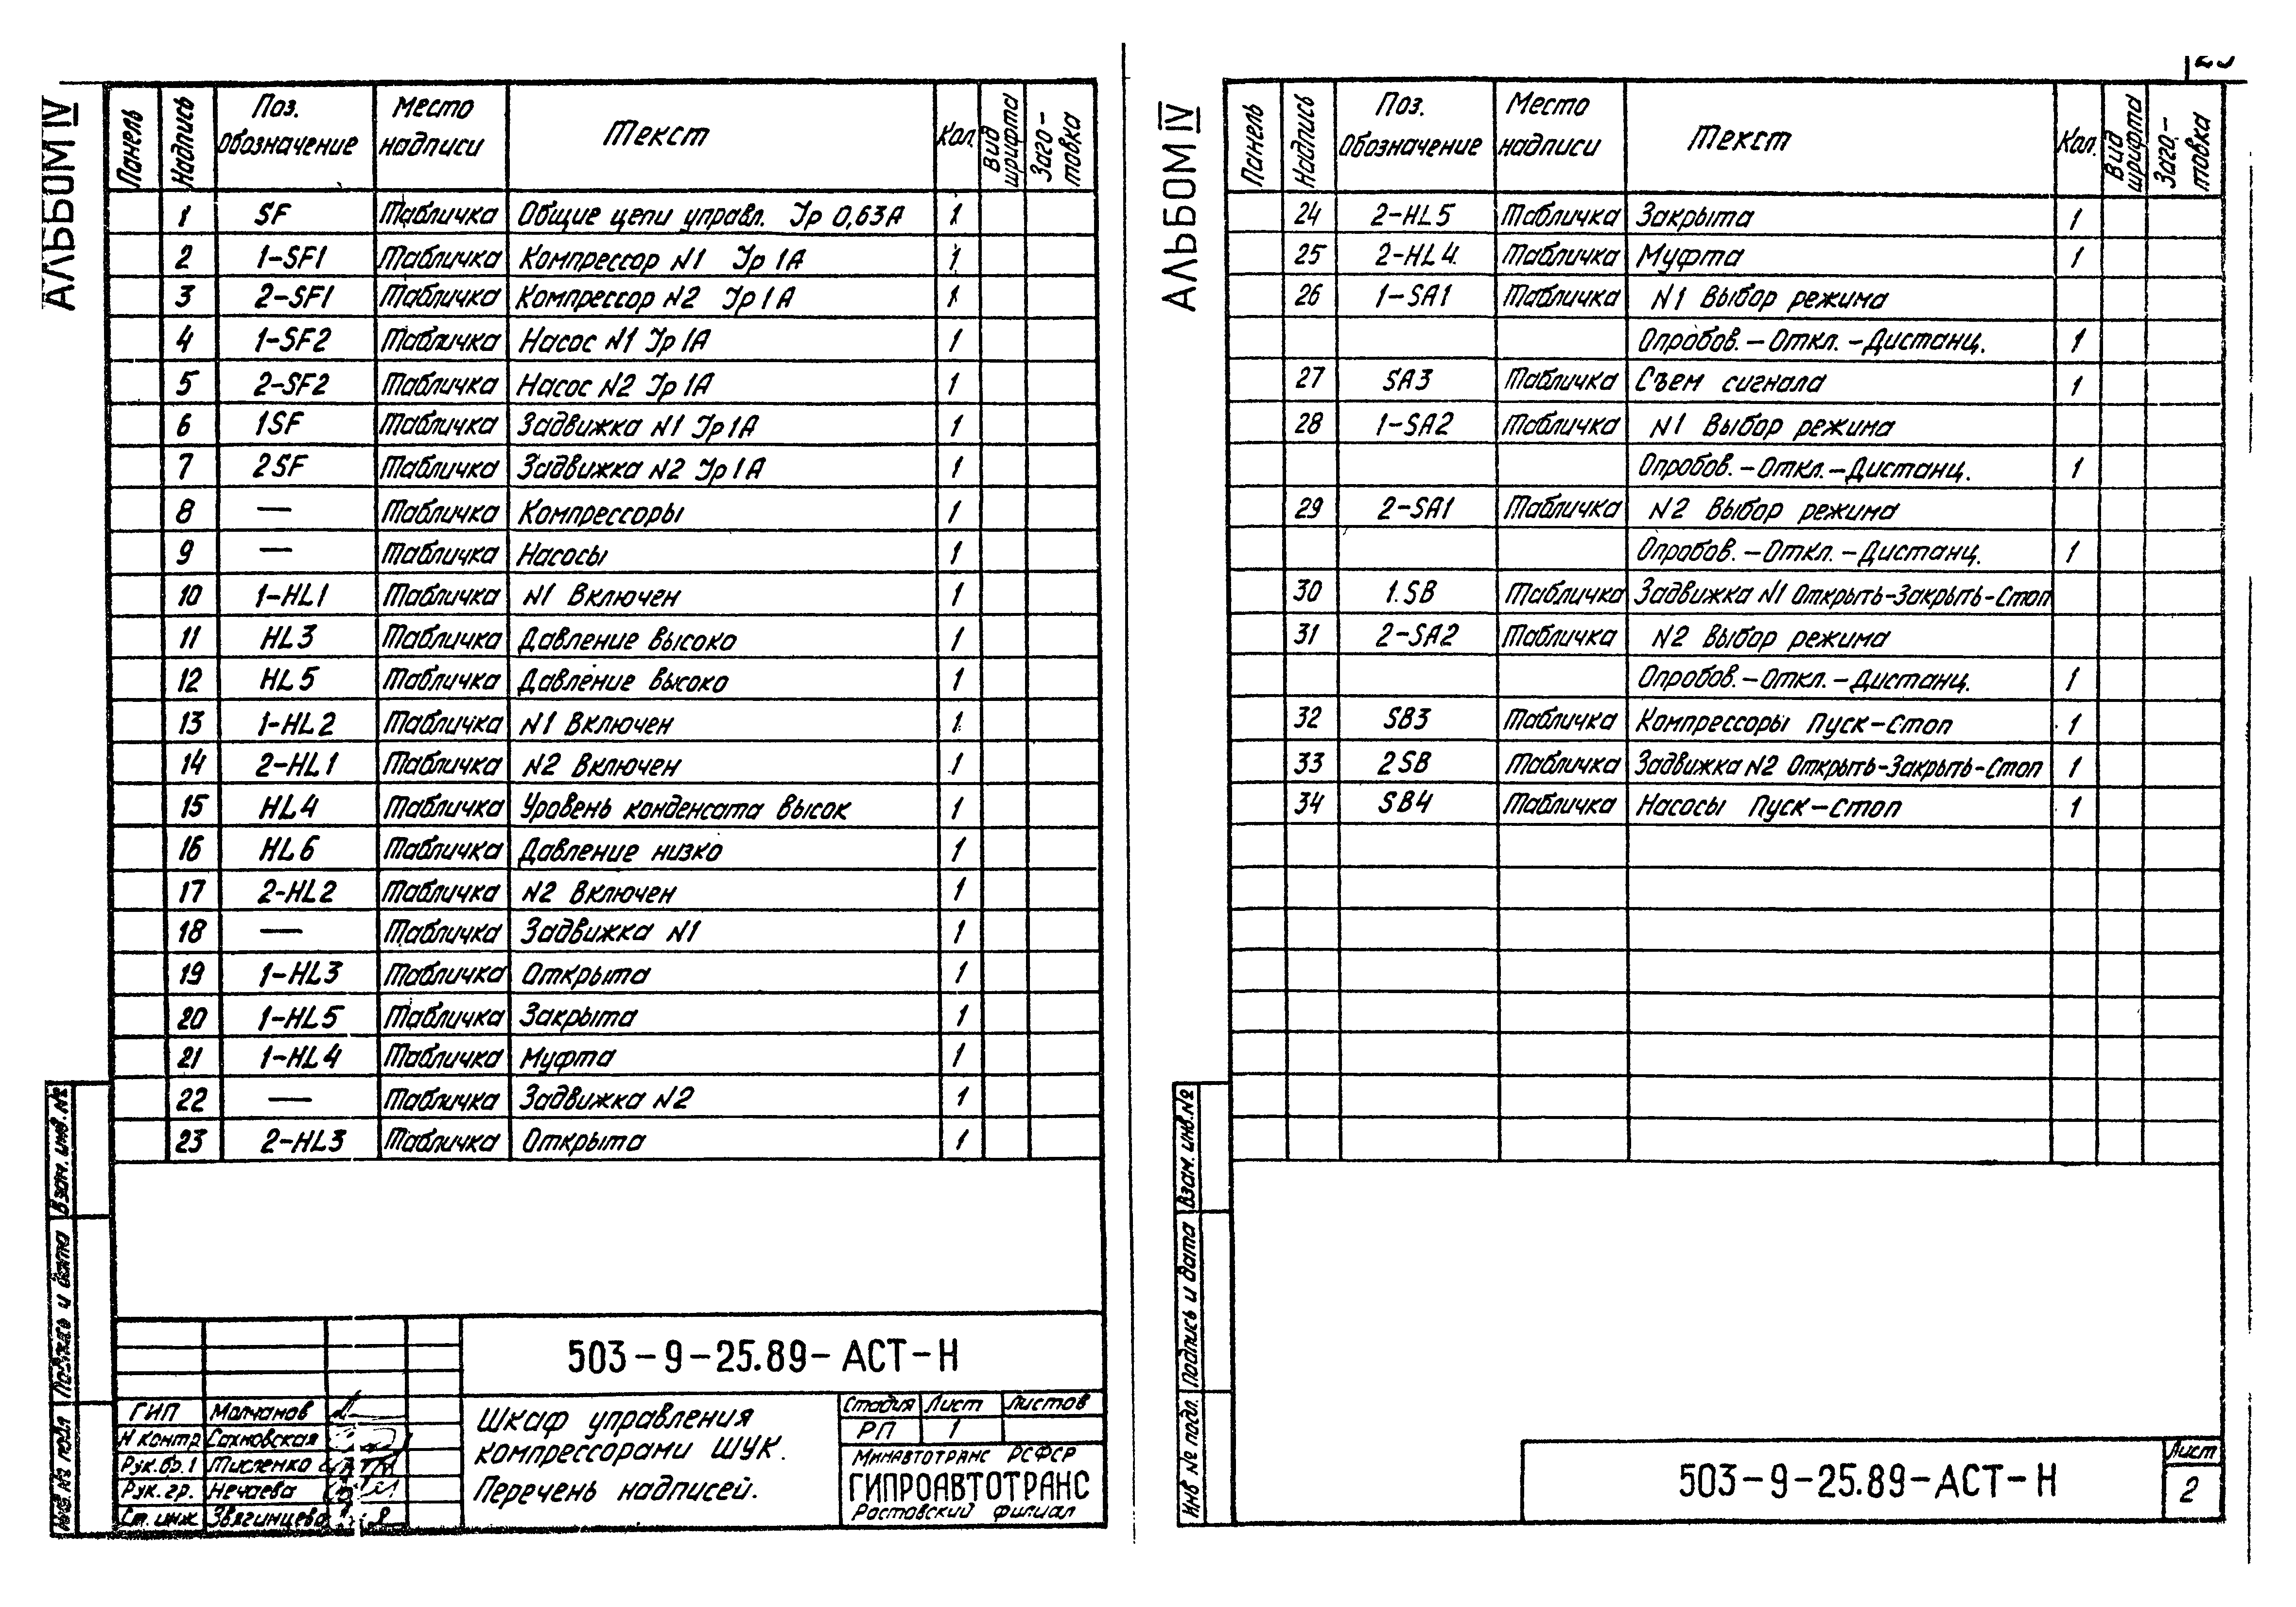 АЛЬБОМ IV
Панель Надпись Поз. обозначение Место надписи Текст Кол. Вид шрифта Заготовка
1 SF Табличка Общие цепи управл. Iр 0,63А 1
2 1-SF1 Табличка Компрессор N1 Iр 1А 1
3 2-SF1 Табличка Компрессор N2 Iр 1А 1
4 1-SF2 Табличка Насос N1 Iр 1А 1
5 2-SF2 Табличка Насос N2 Iр 1А 1
6 1SF Табличка Задвижка N1 Iр 1А 1
7 2SF Табличка Задвижка N2 Iр 1А 1
8 — Табличка Компрессоры 1
9 — Табличка Насосы 1
10 1-HL1 Табличка N1 Включен 1
11 HL3 Табличка Давление высоко 1
12 HL5 Табличка Давление высоко 1
13 1-HL2 Табличка N1 Включен 1
14 2-HL1 Табличка N2 Включен 1
15 HL4 Табличка Уровень конденсата высок 1
16 HL6 Табличка Давление низко 1
17 2-HL2 Табличка N2 Включен 1
18 — Табличка Задвижка N1 1
19 1-HL3 Табличка Открыта 1
20 1-HL5 Табличка Закрыта 1
21 1-HL4 Табличка Муфта 1
22 — Табличка Задвижка N2 1
23 2-HL3 Табличка Открыта 1
Взам. инв. №
Подпись и дата
Инв № подл
503-9-25.89-АСТ-Н
ГИП Молчанов
Н контр Сахновская
Рук.бр.1 Тисленко
Рук. гр. Нечаева
Ст. инж. Звягинцева
Шкаф управления
компрессорами ШУК.
Перечень надписей.
Стадия Лист Листов
РП 1
Минавтотранс РСФСР
ГИПРОАВТОТРАНС
Ростовский филиал
АЛЬБОМ IV
Панель Надпись Поз. обозначение Место надписи Текст Кол. Вид шрифта Заго-товка
24 2-HL5 Табличка Закрыта 1
25 2-HL4 Табличка Муфта 1
26 1-SA1 Табличка N1 Выбор режима
Опробов.-Откл.-Дистанц. 1
27 SA3 Табличка Съем сигнала 1
28 1-SA2 Табличка N1 Выбор режима
Опробов.-Откл.-Дистанц. 1
29 2-SA1 Табличка N2 Выбор режима
Опробов.-Откл.-Дистанц. 1
30 1.SB Табличка Задвижка N1 Открыть-Закрыть-Стоп
31 2-SA2 Табличка N2 Выбор режима
Опробов.-Откл.-Дистанц. 1
32 SB3 Табличка Компрессоры Пуск-Стоп 1
33 2SB Табличка Задвижка N2 Открыть-Закрыть-Стоп 1
34 SB4 Табличка Насосы Пуск-Стоп 1
Взам. инв. №
Подпись и дата
Инв № подл.
503-9-25.89-АСТ-Н
Лист
2